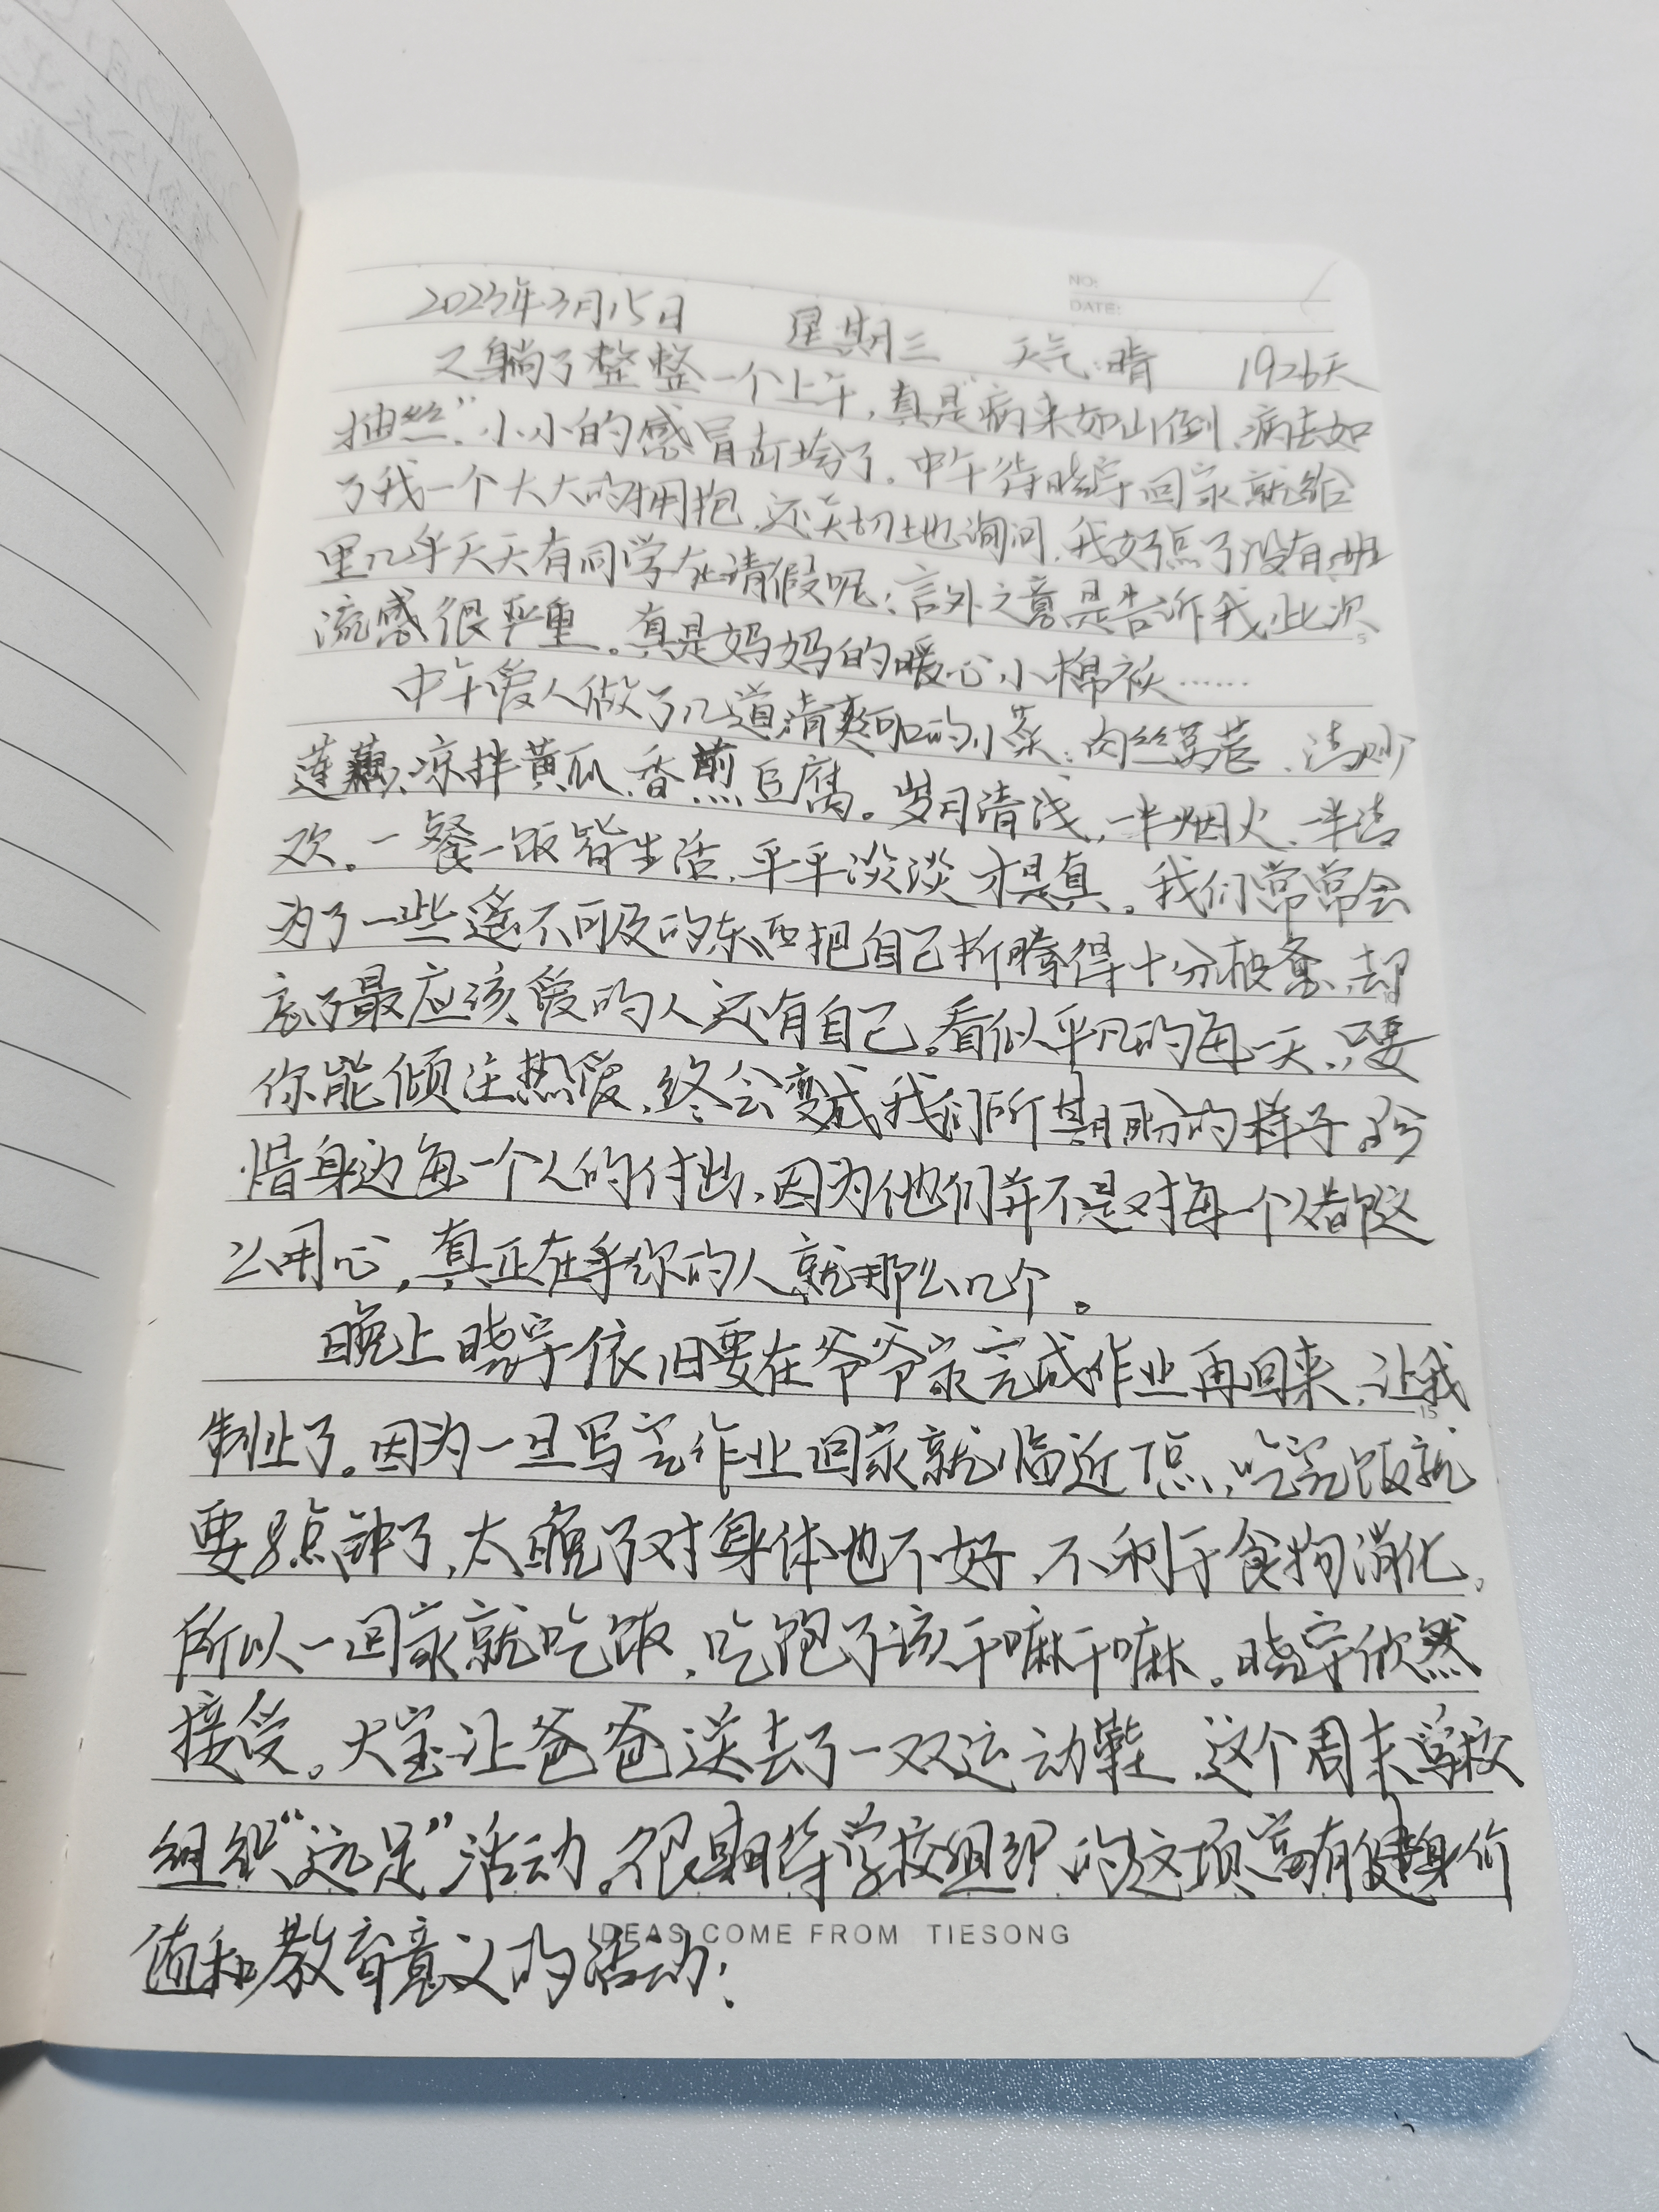 NO:
DATE:
2023年3月15日 星期三 天气:晴 1926天
又躺了整整一个上午,真是“病来如山倒,病去如
抽丝”,小小的感冒击垮了。中午待晓宇回家就给
了我一个大大的拥抱,还关切地询问,我好点了没有,班
里几乎天天有同学在请假呢;言外之意是告诉我,此次
流感很严重。真是妈妈的暖心小棉袄……
中午爱人做了几道清爽可口的小菜:肉丝莴苣、清炒
莲藕、凉拌黄瓜、香煎豆腐。岁月清浅,一半烟火,一半清
欢。一餐一饭皆生活,平平淡淡才是真。我们常常会
为了一些遥不可及的东西把自己折腾得十分疲惫,却
忘了最应该爱的人还有自己。看似平凡的每一天,只要
你能倾注热爱,终会变成我们所期盼的样子。珍
惜身边每一个人的付出,因为他们并不是对每一个人都这
么用心,真正在乎你的人就那么几个。
晚上晓宇依旧要在爷爷家完成作业再回来,让我
制止了。因为一旦写完作业回家就临近7点,吃完饭就
要8点钟了,太晚了对身体也不好,不利于食物消化,
所以一回家就吃饭,吃饱了该干嘛干嘛。晓宇欣然
接受。大宝让爸爸送去了一双运动鞋,这个周末学校
组织“远足”活动。很期待学校组织的这项富有健身价
值和教育意义的活动!
IDEAS COME FROM TIESONG